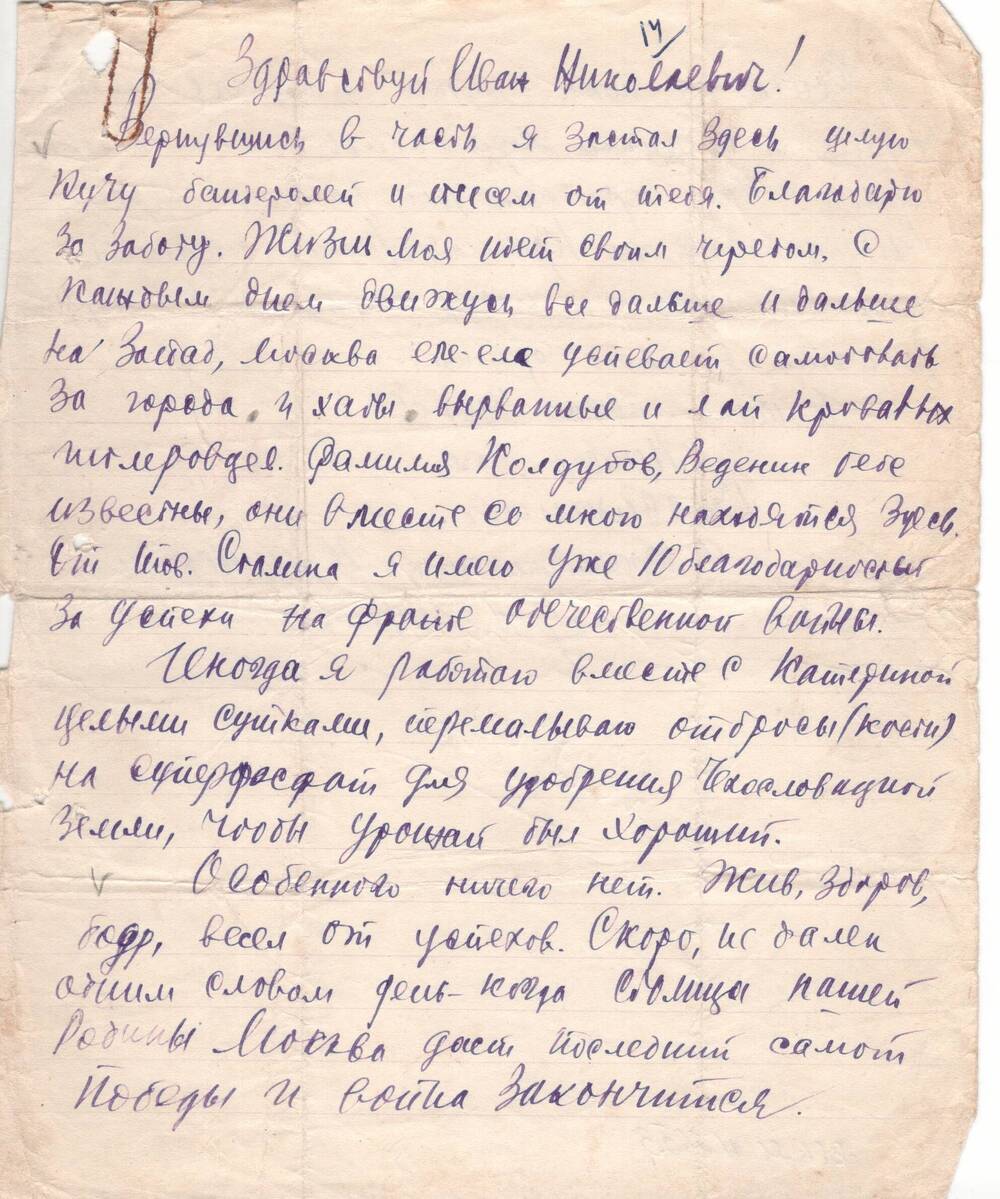 14
Здравствуй Иван Николаевич!
Вернувшись в часть я застал здесь целую
кучу бандеролей и писем от тебя. Благодарю
за заботу. Жизнь моя идет своим чередом. С
каждым днем движусь все дальше и дальше
на Запад, Москва еле-еле успевает самотовать
за города и хаты вырванные и лап кровавых
гитлеровцев. Фамилия Колдубов, Веденин тебе
известны, они вместе со мною находятся здесь.
От тов. Сталина я имею уже 10 благодарностей
за успехи на фронте отечественной войны.
Иногда я работаю вместе с Катериной
целыми сутками, перемалываю отбросы (кости)
на суперфосфат для удобрения Чехословацкой
земли, чтобы урожай был хороший.
Особенного ничего нет. Жив, здоров,
бодр, весел от успехов. Скоро, не далек
одним словом день-когда столица нашей
Родины Москва даст последний самот
Победы и война закончится.